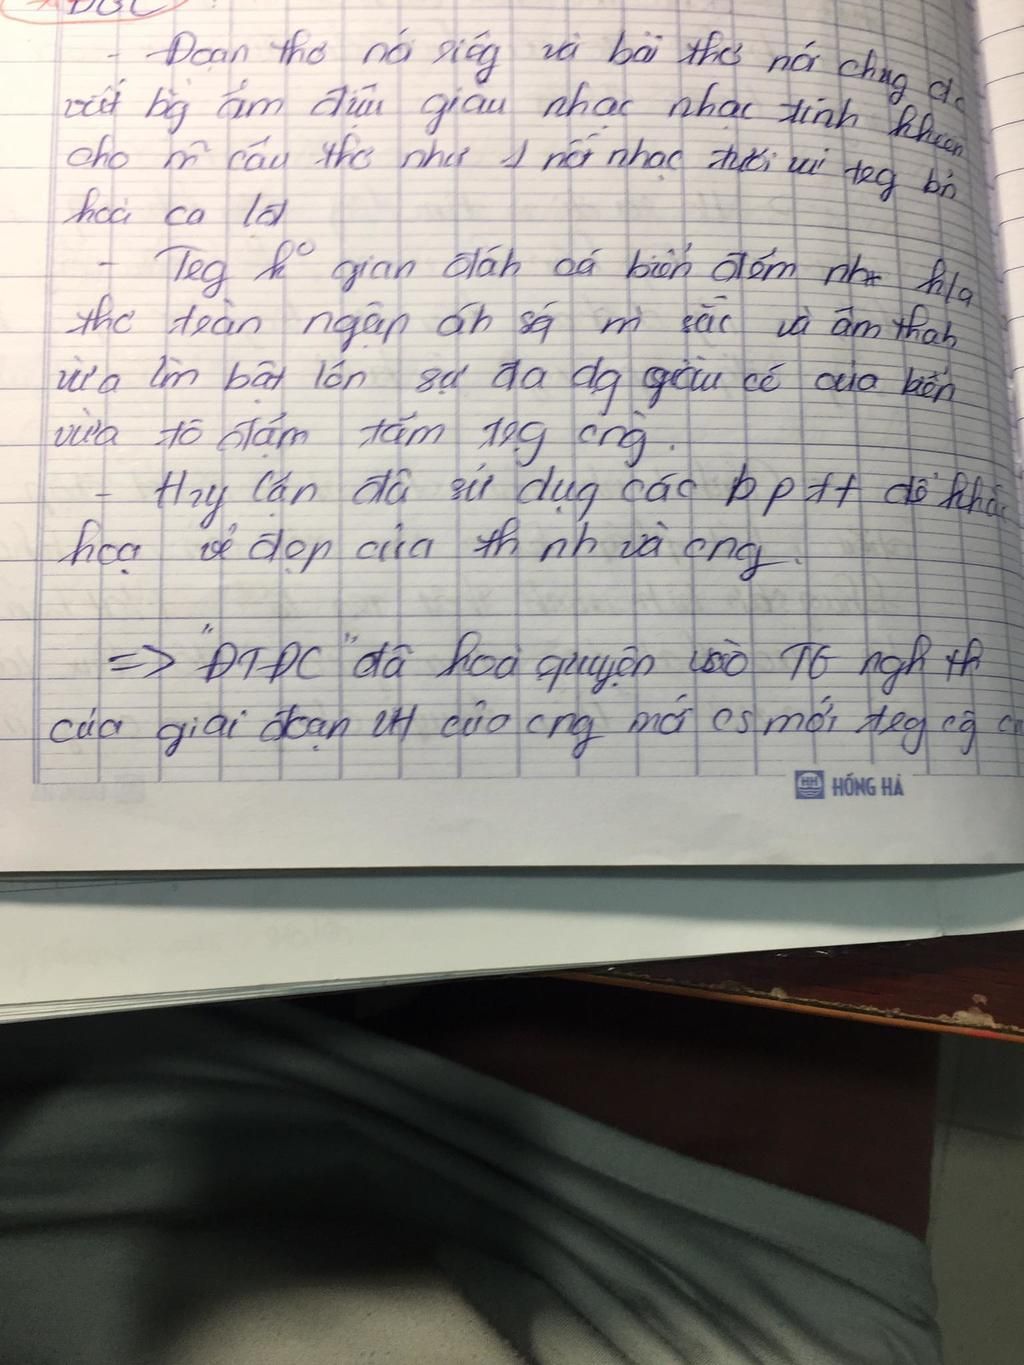 ĐGC
- Đoạn thơ nói riêng và bài thơ nói chug đc
viết bg âm điệu giàu nhạc nhạc tính khiến
cho m câu thơ như 1 nốt nhạc tươi vui teg bản
hoà ca lđ
- Teg ko gian đáh cá biển đêm nh h/a
thơ tràn ngập áh ság mà sắc và âm thah
vừa làm bật lên sự đa dg giàu có của biển
vừa tô đậm tầm cng.
- Huy Cận đã sử dụg các bptt để khắc
hoạ vẻ đẹp của th nh và cng.
=> "ĐTĐC" đã hoà quyện vào TG ngh th
của giai đoạn VH của cng mới cs mới teg cg
HH HỒNG HÀ